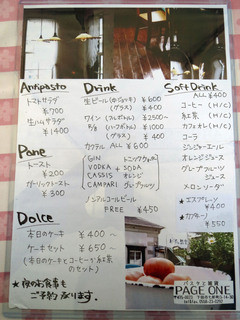 Antipasto
トマトサラダ
¥700
生ハムサラダ
¥1400
Pane
トースト
¥200
ガーリックトースト
¥300
Dolce
本日のケーキ ¥400〜
ケーキセット ¥650〜
(本日のケーキとコーヒーか紅茶
のセット)
★夜のお食事も
ご予約承ります。
Drink
生ビール(中ジョッキ) ¥600
(グラス) ¥400
ワイン(フルボトル) ¥2500〜
(ハーフボトル)
(グラス) ¥400
カクテル ALL ¥600
GIN
VODKA
CASSIS
CAMPARI
+
トニックウォーター
SODA
オレンジ
グレープフルーツ
ノンアルコールビール
FREE ¥450
Soft Drink
ALL ¥400
コーヒー (H/C)
紅茶 (H/C)
カフェオレ (H/C)
コーラ
ジンジャーエール
オレンジジュース
グレープフルーツ
ジュース
メロンソーダー
★エスプレッソ
¥400
★カプチーノ
¥550
パスタと雑貨
PAGE ONE